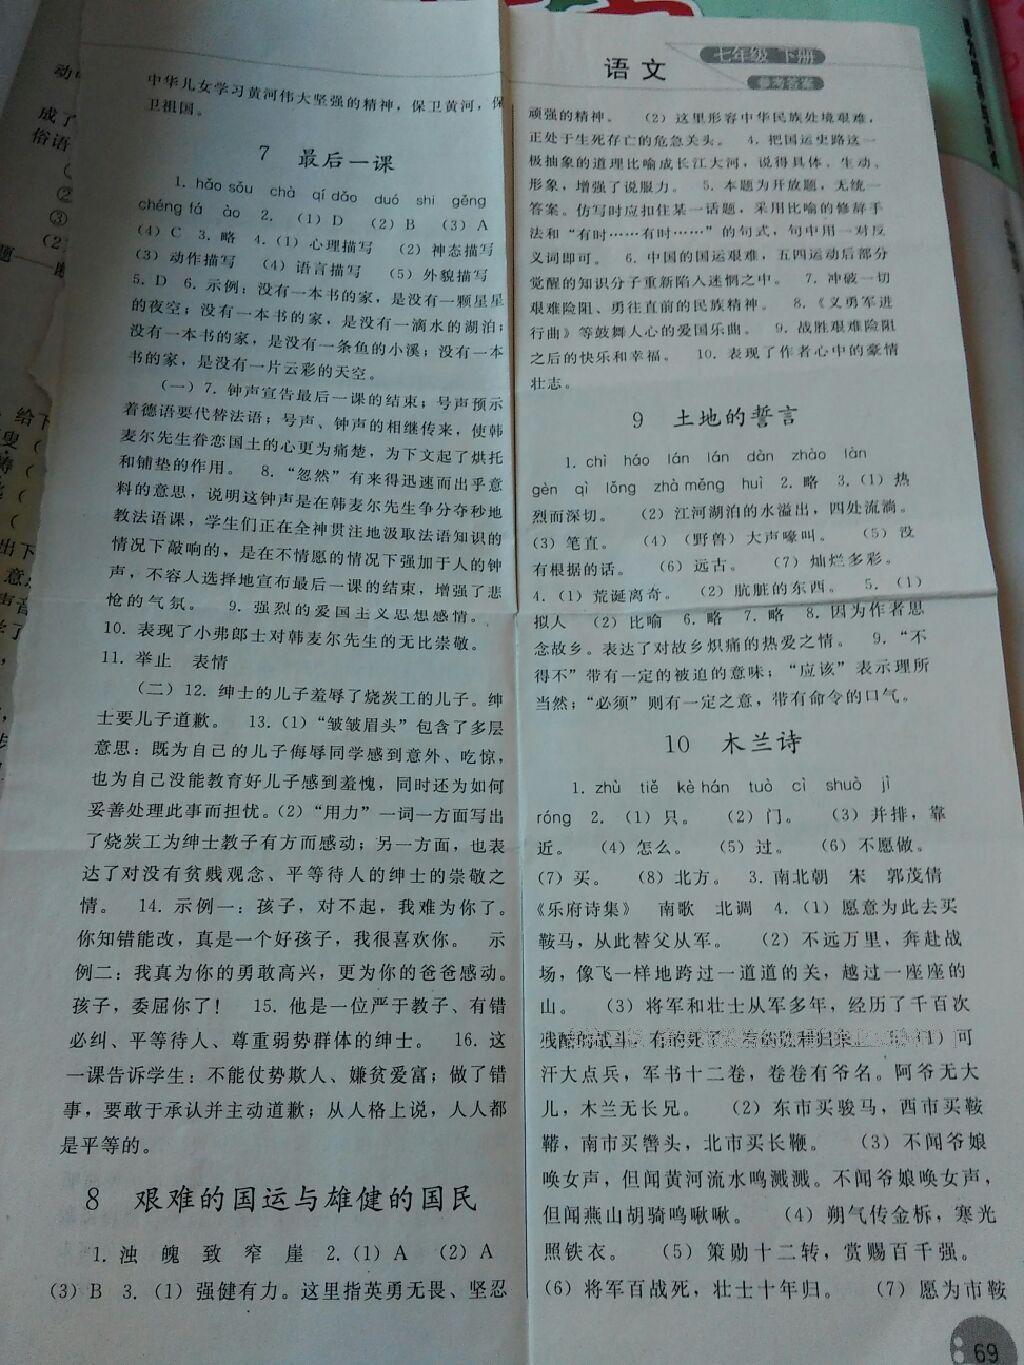 语文
七年级 下册
参考答案
中华儿女学习黄河伟大坚强的精神，保卫黄河，保
卫祖国。
7 最后一课
1. hǎo sǒu chà qí dǎo duó shì gěng
chéng fá ào 2. (1) D (2) B (3) A
(4) C 3. 略 4. (1) 心理描写 (2) 神态描写
(3) 动作描写 (4) 语言描写 (5) 外貌描写
5. D 6. 示例：没有一本书的家，是没有一颗星星
的夜空；没有一本书的家，是没有一滴水的湖泊；
没有一本书的家，是没有一条鱼的小溪；没有一本
书的家，是没有一片云彩的天空。
(一) 7. 钟声宣告最后一课的结束；号声预示
着德语要代替法语；号声、钟声的相继传来，使韩
麦尔先生眷恋国土的心更为痛楚，为下文起了烘托
和铺垫的作用。 8. “忽然”有来得迅速而出乎意
料的意思，说明这钟声是在韩麦尔先生争分夺秒地
教法语课，学生们正在全神贯注地汲取法语知识的
情况下敲响的，是在不情愿的情况下强加于人的钟
声，不容人选择地宣布最后一课的结束，增强了悲
怆的气氛。 9. 强烈的爱国主义思想感情。
10. 表现了小弗郎士对韩麦尔先生的无比崇敬。
11. 举止 表情
(二) 12. 绅士的儿子羞辱了烧炭工的儿子。绅
士要儿子道歉。 13. (1) “皱皱眉头”包含了多层
意思：既为自己的儿子侮辱同学感到意外、吃惊，
也为自己没能教育好儿子感到羞愧，同时还为如何
妥善处理此事而担忧。(2) “用力”一词一方面写出
了烧炭工为绅士教子有方而感动；另一方面，也表
达了对没有贫贱观念、平等待人的绅士的崇敬之
情。 14. 示例一：孩子，对不起，我难为你了。
你知错能改，真是一个好孩子，我很喜欢你。 示
例二：我真为你的勇敢高兴，更为你的爸爸感动。
孩子，委屈你了！ 15. 他是一位严于教子、有错
必纠、平等待人、尊重弱势群体的绅士。 16. 这
一课告诉学生：不能仗势欺人、嫌贫爱富；做了错
事，要敢于承认并主动道歉；从人格上说，人人都
是平等的。
8 艰难的国运与雄健的国民
1. 浊 魄 致 窄 崖 2. (1) A (2) A
(3) B 3. (1) 强健有力。这里指英勇无畏、坚忍
顽强的精神。 (2) 这里形容中华民族处境艰难，
正处于生死存亡的危急关头。 4. 把国运史路这一
极抽象的道理比喻成长江大河，说得具体、生动、
形象，增强了说服力。 5. 本题为开放题，无统一
答案。仿写时应扣住某一话题，采用比喻的修辞手
法和“有时……有时……”的句式，句中用一对反
义词即可。 6. 中国的国运艰难，五四运动后部分
觉醒的知识分子重新陷入迷惘之中。 7. 冲破一切
艰难险阻、勇往直前的民族精神。 8. 《义勇军进
行曲》等鼓舞人心的爱国乐曲。 9. 战胜艰难险阻
之后的快乐和幸福。 10. 表现了作者心中的豪情
壮志。
9 土地的誓言
1. chì háo lán lán dàn zhào làn
gèn qì lǒng zhà měng huì 2. 略 3. (1) 热
烈而深切。 (2) 江河湖泊的水溢出，四处流淌。
(3) 笔直。 (4) (野兽) 大声嚎叫。 (5) 没
有根据的话。 (6) 远古。 (7) 灿烂多彩。
4. (1) 荒诞离奇。 (2) 肮脏的东西。 5. (1)
拟人 (2) 比喻 6. 略 7. 略 8. 因为作者思
念故乡。表达了对故乡炽痛的热爱之情。 9. “不
得不”带有一定的被迫的意味；“应该”表示理所
当然；“必须”则有一定之意，带有命令的口气。
10 木兰诗
1. zhù tiě kè hán tuò cì shuò jì
róng 2. (1) 只。 (2) 门。 (3) 并排，靠
近。 (4) 怎么。 (5) 过。 (6) 不愿做。
(7) 买。 (8) 北方。 3. 南北朝 宋 郭茂倩
《乐府诗集》 南歌 北调 4. (1) 愿意为此去买
鞍马，从此替父从军。 (2) 不远万里，奔赴战
场，像飞一样地跨过一道道的关，越过一座座的
山。 (3) 将军和壮士从军多年，经历了千百次
残酷的战斗，有的死了 (1) 可
汗大点兵，军书十二卷，卷卷有爷名。阿爷无大
儿，木兰无长兄。 (2) 东市买骏马，西市买鞍
鞯，南市买辔头，北市买长鞭。 (3) 不闻爷娘
唤女声，但闻黄河流水鸣溅溅。不闻爷娘唤女声，
但闻燕山胡骑鸣啾啾。 (4) 朔气传金柝，寒光
照铁衣。 (5) 策勋十二转，赏赐百千强。
(6) 将军百战死，壮士十年归。 (7) 愿为市鞍
69